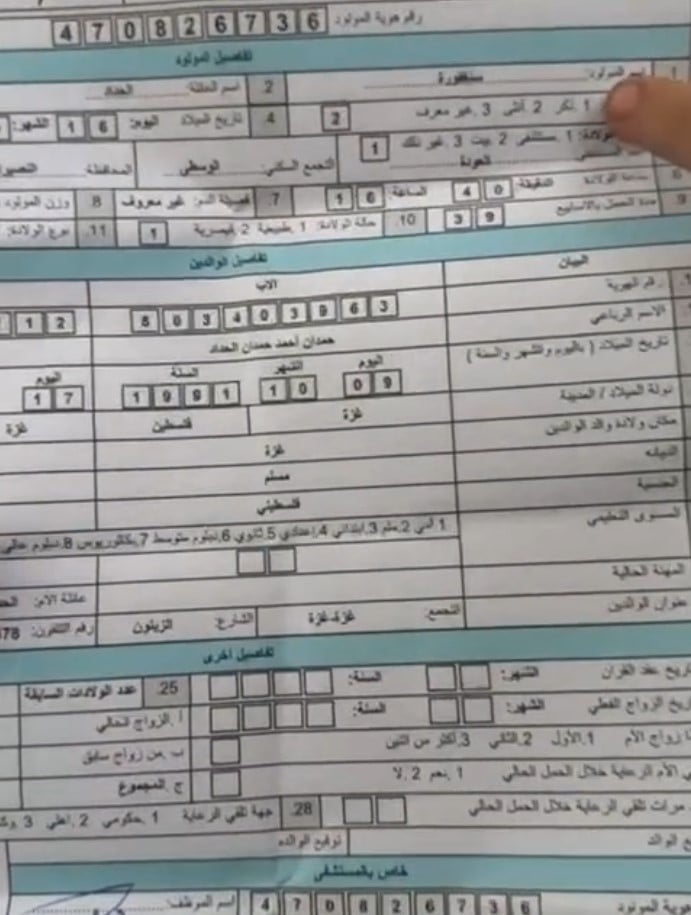 رقم هوية المولود 4 7 0 8 2 6 7 3 6
تفاصيل المولود
اسم المولود: سنغفورة 2 اسم العائلة: الحداد
1. ذكر 2. أنثى 3. غير معرف 2 4 تاريخ الميلاد اليوم: 1 6 الشهر:
الولادة: 1. مستشفى 2. بيت 3. غير ذلك 1 التجمع السكني: الوسطى المحافظة:
المستشفى العودة
6 ساعة الولادة الدقيقة: 4 0 الساعة: 1 6 7. فصيلة الدم: غير معروف 8 وزن المولود
9 مدة الحمل بالأسابيع 3 9 10. حالة الولادة: 1. طبيعية 2. قيصرية 1 11. نوع الولادة:
تفاصيل الوالدين
البيان الأب
رقم الهوية 8 0 3 4 0 3 9 6 3 1 2
الاسم الرباعي حمدان أحمد حمدان الحداد
تاريخ الميلاد ( باليوم والشهر والسنة ) اليوم 0 9 الشهر 1 0 السنة 1 9 9 1 اليوم 1 7
دولة الميلاد / المدينة غزة فلسطين غزة
مكان ولادة والد الوالدين غزة
الديانة مسلم
الجنسية فلسطيني
المستوى التعليمي 1. أمي 2. ملم 3. ابتدائي 4. إعدادي 5. ثانوي 6. دبلوم متوسط 7. بكالوريوس 8. دبلوم عالي
المهنة الحالية عائلة الأم:
عنوان الوالدين التجمع: غزة-غزة الشارع: الزيتون رقم التلفون: 78
تفاصيل أخرى
تاريخ عقد القران الشهر: السنة: 25. عدد الولادات السابقة
تاريخ الزواج الفعلي الشهر: السنة: أ. الزواج الحالي
زواج الأم 1. الأول 2. الثاني 3. أكثر من اثنين ب. من زواج سابق
الأم الرعاية خلال الحمل الحالي 1. نعم 2. لا ج. المجموع
مرات تلقي الرعاية خلال الحمل الحالي 28. جهة تلقي الرعاية 1. حكومي 2. أهلي 3. وكالة
توقيع الوالدة
خاص بالمستشفى
هوية المولود 4 7 0 8 2 6 7 3 6 اسم الموظف: